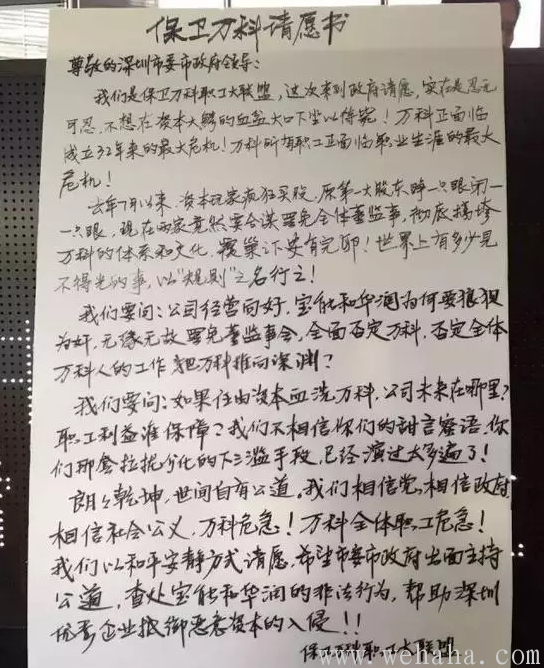 保卫万科请愿书
尊敬的深圳市委市政府领导:
我们是保卫万科职工大联盟，这次来到政府请愿，实在是忍无
可忍，不想在资本大鳄的血盆大口下坐以待毙！万科正面临
成立32年来的最大危机！万科所有职工正面临职业生涯的最大
危机！
去年7月以来，资本玩家疯狂买股，原第一大股东睁一只眼闭
一只眼，现在两家竟然要合谋罢免全体董监事，彻底搞垮
万科的体系和文化，覆巢之下安有完卵！世界上有多少见
不得光的事，以“规则”之名行之！
我们要问：公司经营向好，宝能和华润为何要狼狈
为奸，无缘无故罢免董监事会，全面否定万科，否定全体
万科人的工作，把万科推向深渊？
我们要问：如果任由资本血洗万科，公司未来在哪里？
职工利益谁保障？我们不相信你们的甜言蜜语，你
们那套拉拢分化的下三滥手段，已经演过太多遍了！
朗々乾坤，世间自有公道，我们相信党，相信政府，
相信社会公义，万科危急！万科全体职工危急！
我们以和平安静方式请愿，希望市委市政府出面主持
公道，查处宝能和华润的非法行为，帮助深圳
优秀企业抵御恶意资本的入侵！！
保卫万科职工大联盟
www.wehaha.com